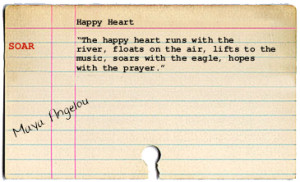 Happy Heart
SOAR
"The happy heart runs with the
river, floats on the air, lifts to the
music, soars with the eagle, hopes
with the prayer."
Maya Angelou